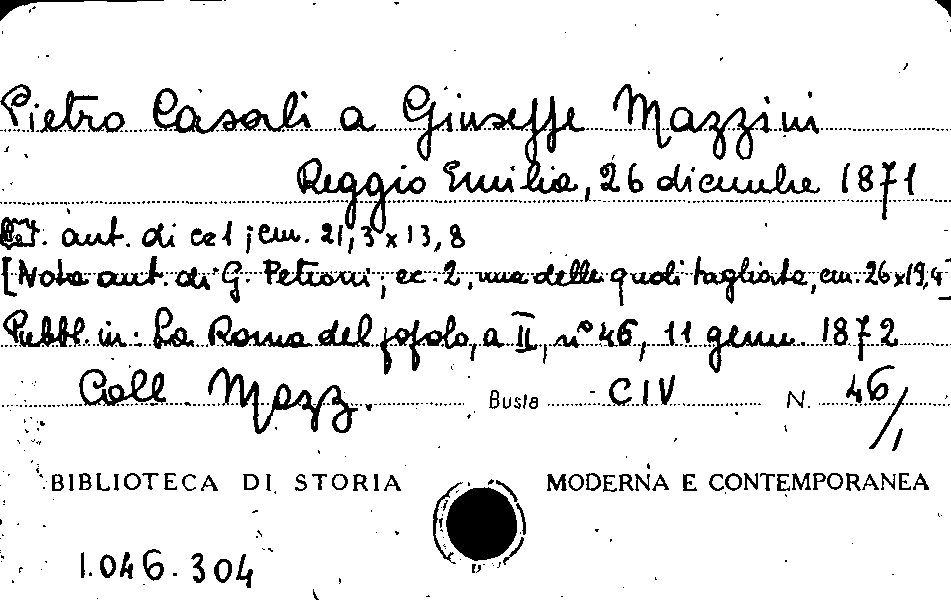 Pietro Casali a Giuseppe Mazzini
Reggio Emilia, 26 dicembre 1871
Let. aut. di cc 1 ; cm. 21,3 x 13,8
[Nota aut. di G. Petroni; cc. 2, una delle quali tagliata, cm. 26 x 19,4]
Pubbl. in: La Roma del popolo, a II, n° 46, 11 genn. 1872
Coll. Mazz. Busta CIV N. 46/1
BIBLIOTECA DI STORIA MODERNA E CONTEMPORANEA
1.046.304